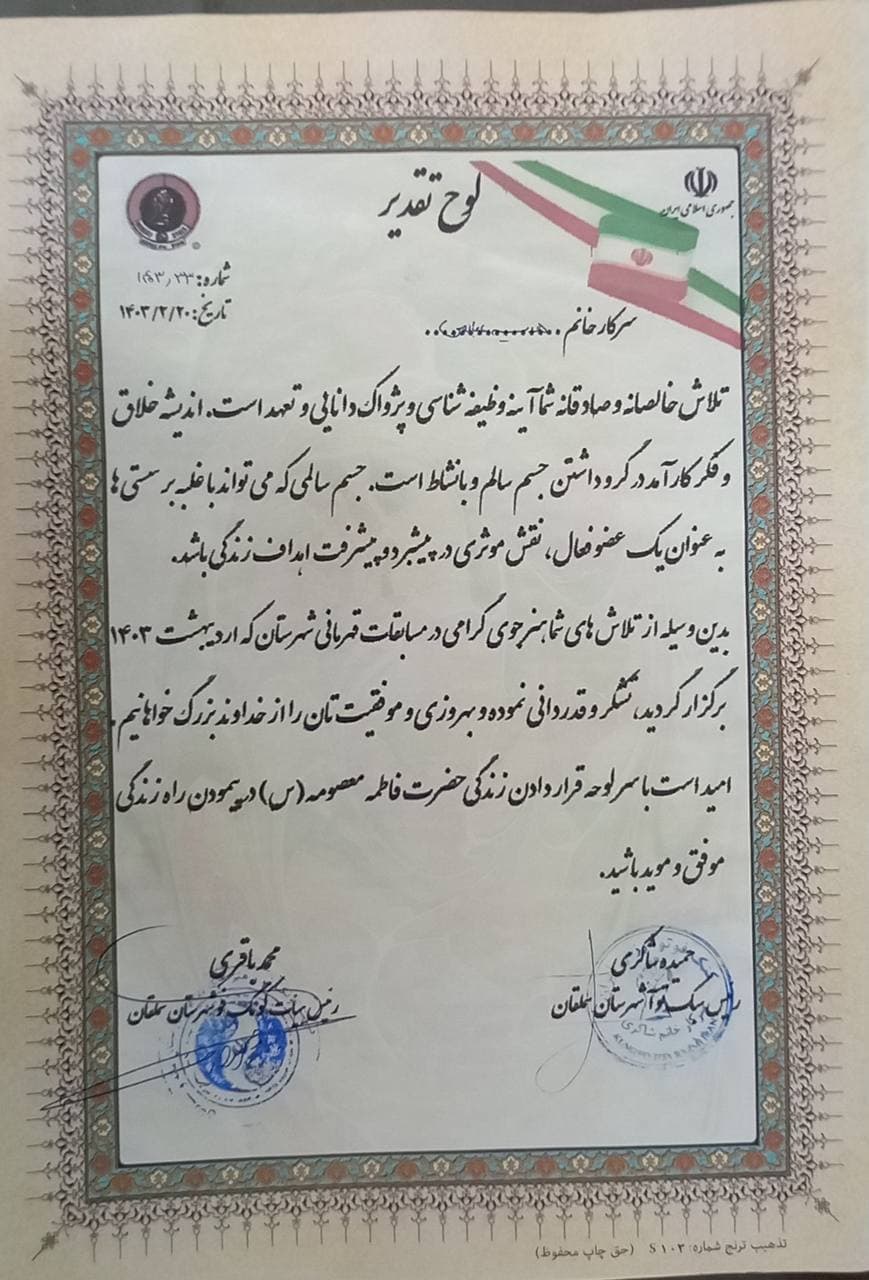 جمهوری اسلامی ایران
لوح تقدیر
شماره:
تاریخ: ۱۴۰۳/۲/۲۰
سرکار خانم
تلاش خالصانه و صادقانه شما آینه وظیفه شناسی و پژواک دانایی و تعهد است. اندیشه خلاق
و فکر کارآمد در گرو داشتن جسم سالم و بانشاط است. جسم سالمی که می تواند با غلبه بر سستی ها
به عنوان یک عضو فعال، نقش موثری در پیشبرد و پیشرفت اهداف زندگی باشد.
بدین وسیله از تلاش های شما هنرجوی گرامی در مسابقات قهرمانی شهرستان که اردیبهشت ۱۴۰۳
برگزار گردید، تشکر و قدردانی نموده و بهروزی و موفقیت تان را از خداوند بزرگ خواهانیم.
امید است با سرلوحه قرار دادن زندگی حضرت فاطمه معصومه (س) در پیمودن راه زندگی
موفق و موید باشید.
حمیده شاکری
رئیس سبک توآ شهرستان سملقان
خانم شاکری
محمد باقری
رئیس هیات کونگ فو شهرستان سملقان
تذهیب ترنج شماره: S ۱۰۲ (حق چاپ محفوظ)